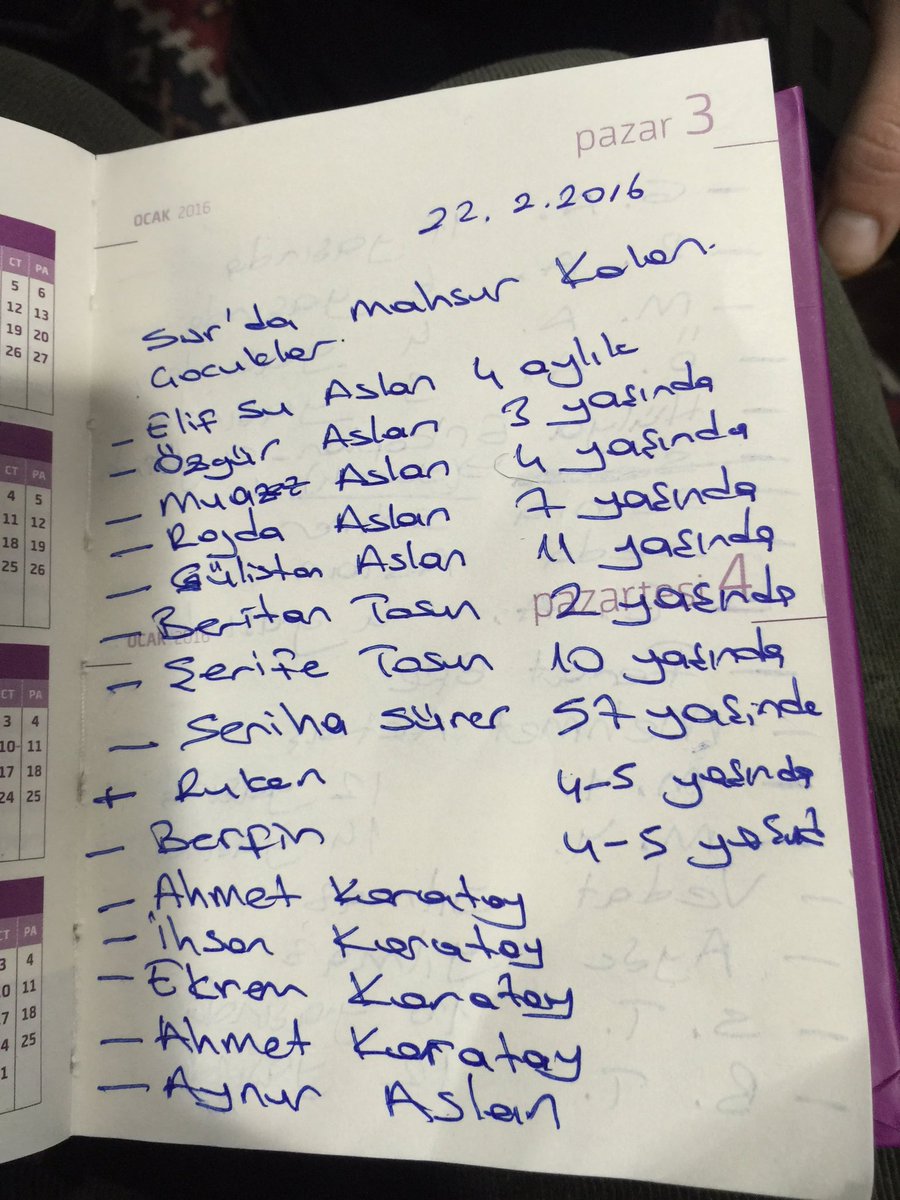 pazar 3
OCAK 2016
22.2.2016
Sur'da Mahsur Kalan
Çocuklar.
- Elif Su Aslan 4 aylık
- Özgür Aslan 3 yaşında
- Muazz Aslan 4 yaşında
- Rojda Aslan 7 yaşında
- Gülistan Aslan 11 yaşında
pazartesi 4
- Beritan Tosun 2 yaşında
OCAK 2016
- Şerife Tosun 10 yaşında
- Seniha Sürer 57 yaşında
+ Ruken 4-5 yaşında
- Berfin 4-5 yaşınd
- Ahmet Karatay
- İhsan Karatay
- Ekrem Karatay
- Ahmet Karatay
- Aynur Aslan
CT PA
5 6
12 13
19 20
26 27
CT PA
4 5
11 12
18 19
25 26
CT PA
3 4
10 11
17 18
24 25
CT PA
3 4
10 11
17 18
24 25